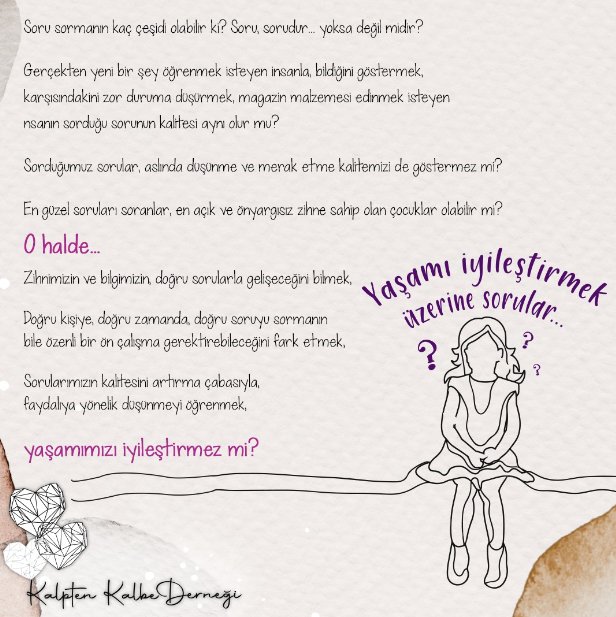 Soru sormanın kaç çeşidi olabilir ki? Soru, sorudur... yoksa değil midir?
Gerçekten yeni bir şey öğrenmek isteyen insanla, bildiğini göstermek,
karşısındakini zor duruma düşürmek, magazin malzemesi edinmek isteyen
nsanın sorduğu sorunun kalitesi aynı olur mu?
Sorduğumuz sorular, aslında düşünme ve merak etme kalitemizi de göstermez mi?
En güzel soruları soranlar, en açık ve önyargısız zihne sahip olan çocuklar olabilir mi?
O halde...
Zihnimizin ve bilgimizin, doğru sorularla gelişeceğini bilmek,
Doğru kişiye, doğru zamanda, doğru soruyu sormanın
bile özenli bir ön çalışma gerektirebileceğini fark etmek,
Sorularımızın kalitesini artırma çabasıyla,
faydalıya yönelik düşünmeyi öğrenmek,
yaşamımızı iyileştirmez mi?
Yaşamı iyileştirmek
üzerine sorular...
? ? ?
Kalpten Kalbe Derneği